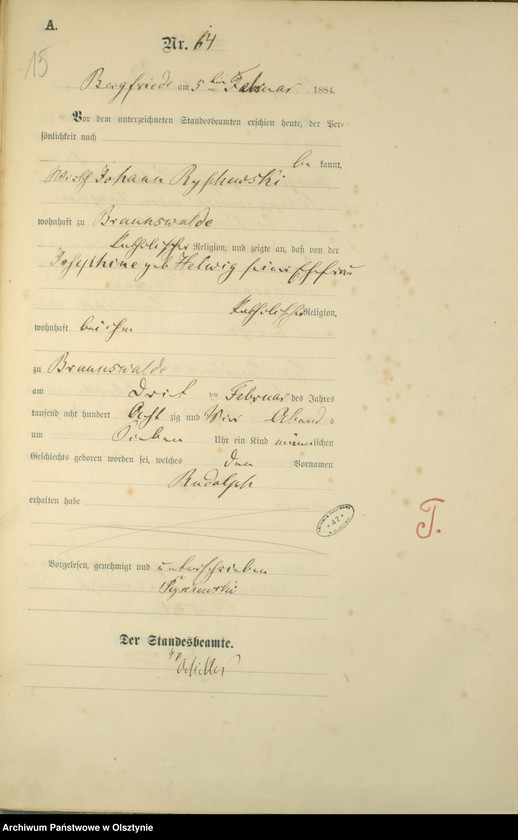 A.
Nr. 64
15
Bergfriede am 5ten Februar 1884.
Vor dem unterzeichneten Standesbeamten erschien heute, der Per-
sönlichkeit nach
be kannt,
Wirth Johann Ryschewski
wohnhaft zu Braunswalde
katholischer Religion, und zeigte an, daß von der
Josephine geb Helwig seiner Ehefrau
katholischer Religion,
wohnhaft bei ihm
zu Braunswalde
am Drit en Februar des Jahres
tausend acht hundert Acht zig und Vier Abend s
um Sieben Uhr ein Kind männlichen
Geschlechts geboren worden sei, welches den Vornamen
Rudolph
erhalten habe
42
T.
Vorgelesen, genehmigt und unterschrieben
Der Standesbeamte.
Archiwum Państwowe w Olsztynie